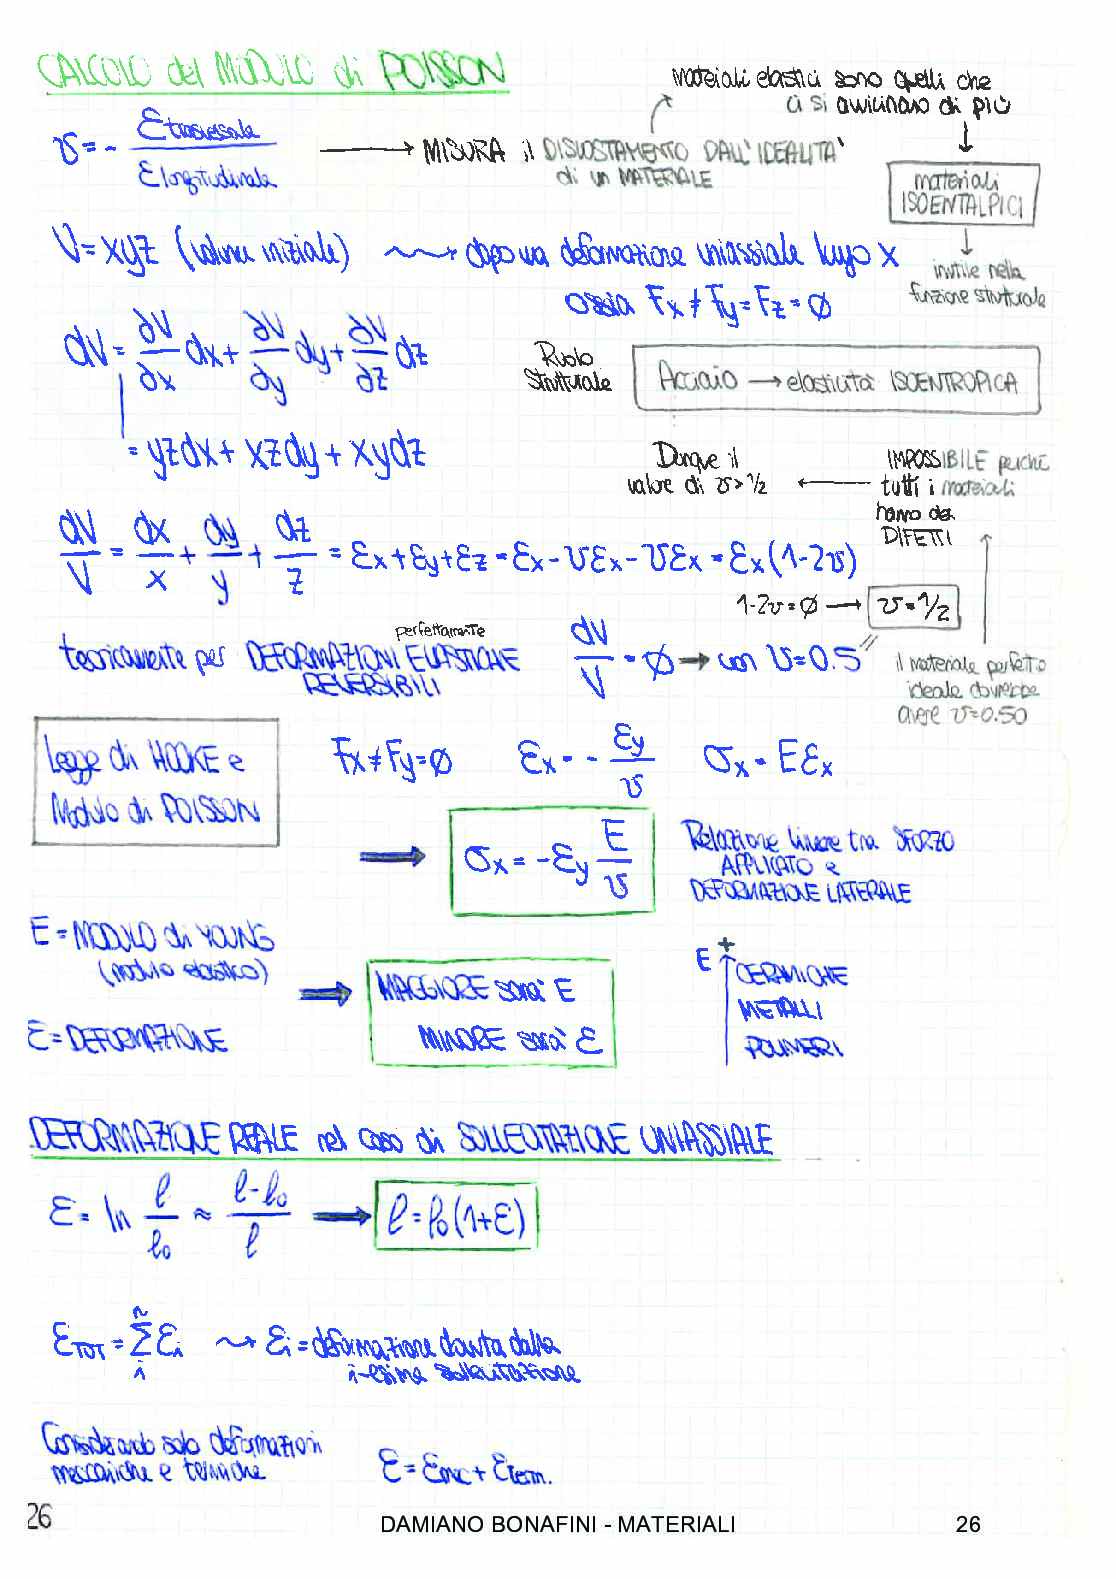 CALCOLO del MODULO di POISSON
materiali elastici sono quelli che
ci si avvicinano di più
ν = - εtrasversale / εlongitudinale
MISURA il DISCOSTAMENTO DALL'IDEALITA'
di un MATERIALE
materiali
ISOENTALPICI
inutile nella
funzione strutturale
V = xyz (volume iniziale) ⇝ dopo una deformazione uniassiale lungo x
ossia Fx ≠ Fy = Fz = ∅
dV = ∂V/∂x dx + ∂V/∂y dy + ∂V/∂z dz
Ruolo
Strutturale
Acciaio → elasticità ISOENTROPICA
= yzdx + xzdy + xydz
Dunque il
valore di ν > 1/2
IMPOSSIBILE perché
tutti i materiali
hanno dei
DIFETTI
dV/V = dx/x + dy/y + dz/z = εx + εy + εz = εx - νεx - νεx = εx(1-2ν)
1-2ν = ∅ → ν = 1/2
teoricamente per DEFORMAZIONI perfettamente ELASTICHE
REVERSIBILI
dV/V = ∅ → con ν = 0.5
il materiale perfetto
ideale dovrebbe
avere ν = 0.50
Legge di HOOKE e
Modulo di POISSON
Fx ≠ Fy = ∅ εx = - εy/ν σx = Eεx
σx = -εy E/ν
Relazione lineare tra SFORZO
APPLICATO e
DEFORMAZIONE LATERALE
E = MODULO di YOUNG
(modulo elastico)
ε = DEFORMAZIONE
MAGGIORE sarà E
MINORE sarà ε
E +
CERAMICHE
METALLI
POLIMERI
DEFORMAZIONE REALE nel caso di SOLLECITAZIONE UNIASSIALE
ε = ln l/l₀ ≈ l-l₀/l → l = l₀(1+ε)
εTOT = Σ εi ⇝ εi = deformazione dovuta dalla
i-esima sollecitazione
Considerando solo deformazioni
meccaniche e termiche
ε = εmec + εterm.
26
DAMIANO BONAFINI - MATERIALI
26